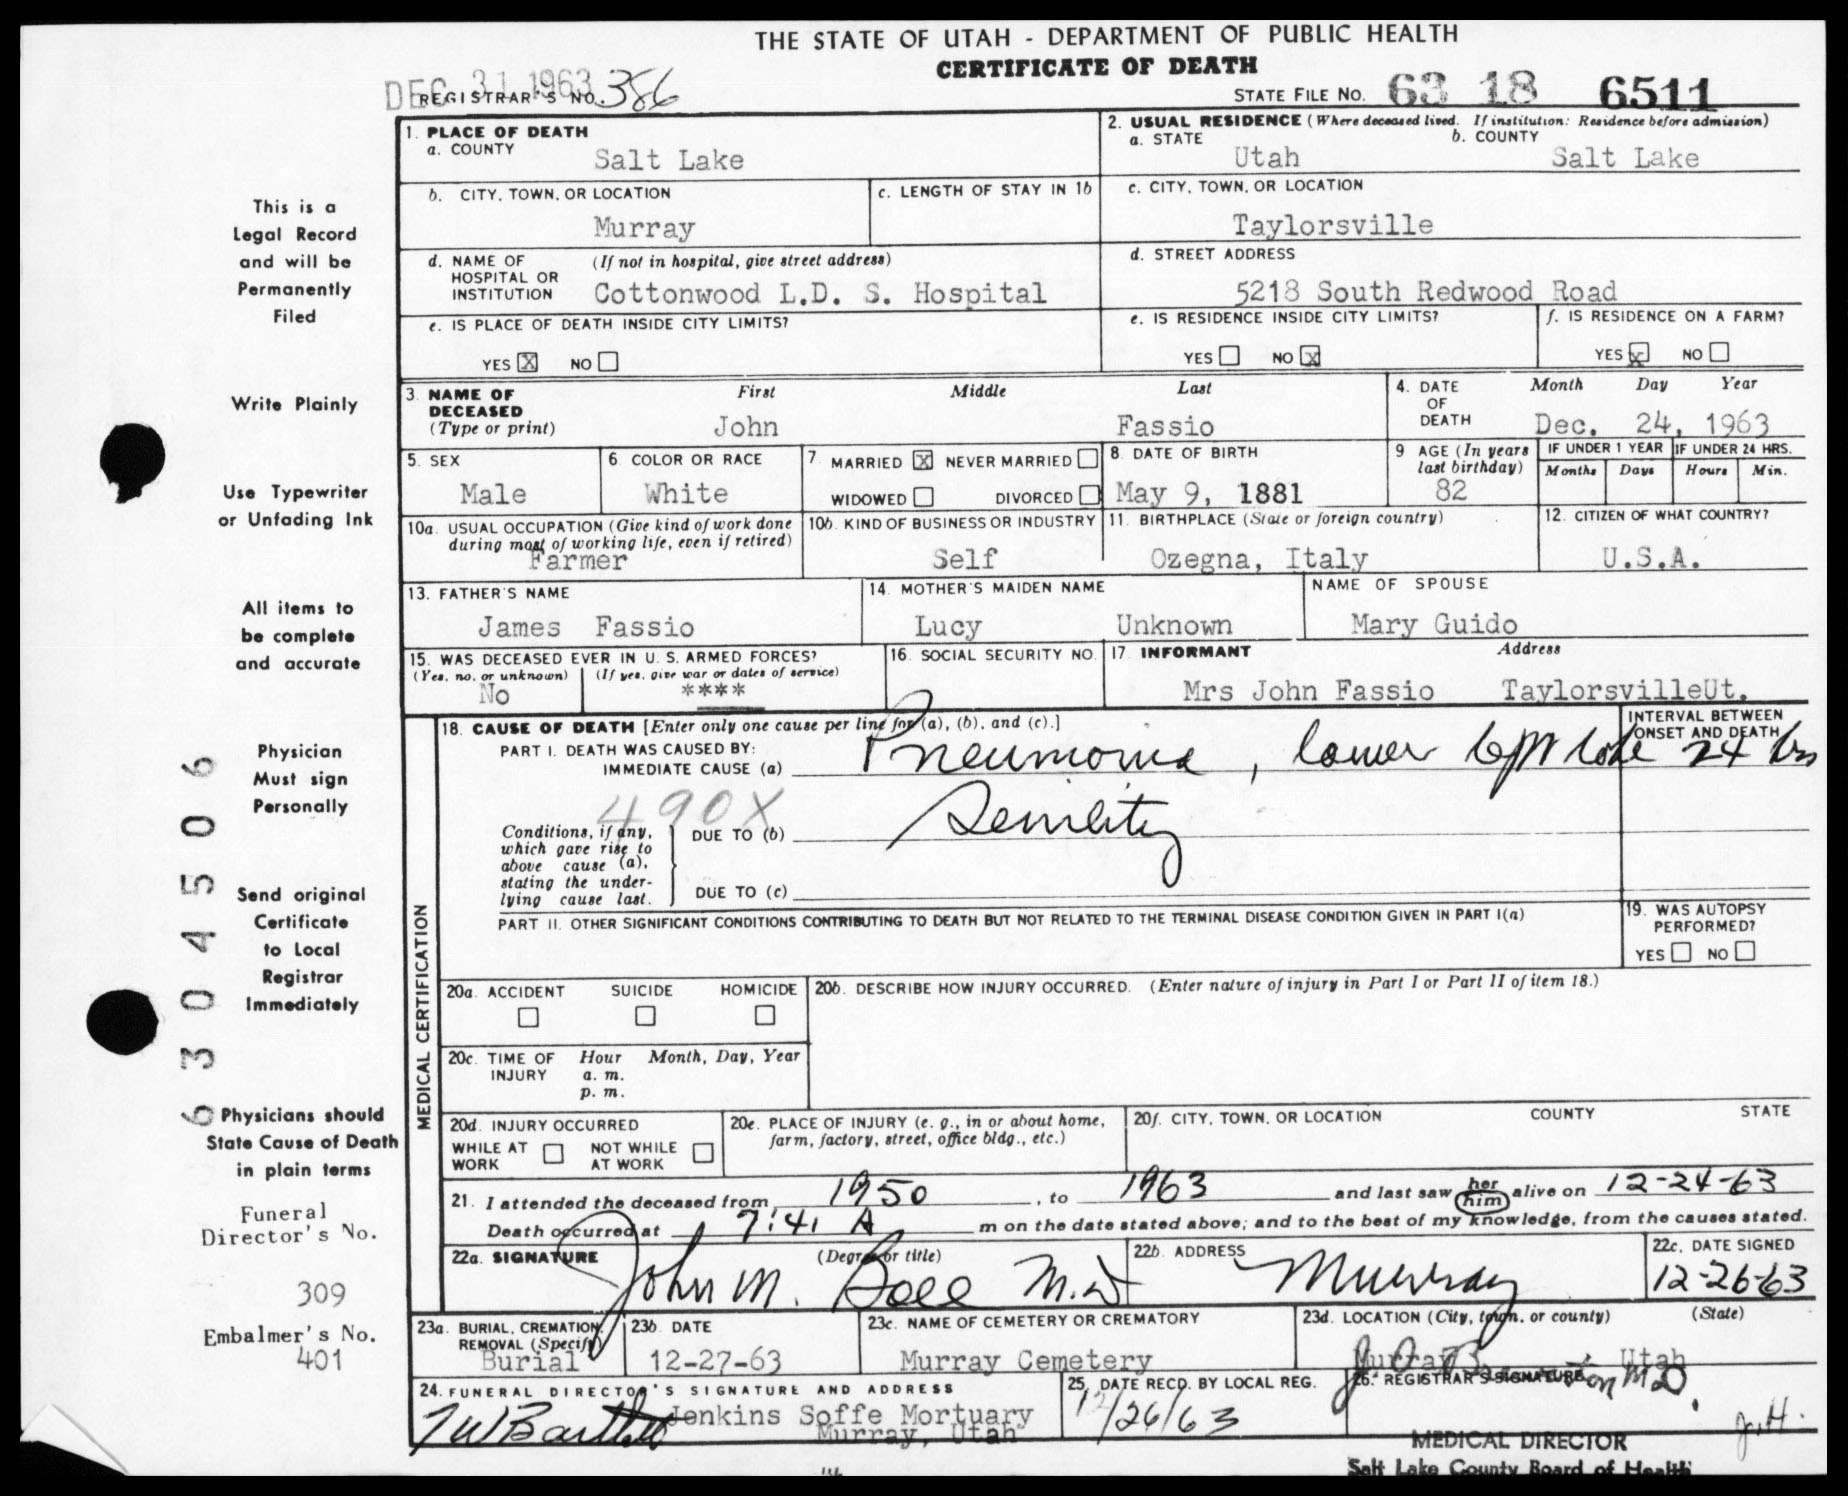 THE STATE OF UTAH - DEPARTMENT OF PUBLIC HEALTH
CERTIFICATE OF DEATH
DEC 31 1963
REGISTRAR'S NO. 386
STATE FILE NO. 63 18 6511
1. PLACE OF DEATH
a. COUNTY
Salt Lake
2. USUAL RESIDENCE (Where deceased lived. If institution: Residence before admission)
a. STATE
Utah
b. COUNTY
Salt Lake
b. CITY, TOWN, OR LOCATION
Murray
c. LENGTH OF STAY IN 1b
c. CITY, TOWN, OR LOCATION
Taylorsville
d. NAME OF HOSPITAL OR INSTITUTION
(If not in hospital, give street address)
Cottonwood L.D. S. Hospital
d. STREET ADDRESS
5218 South Redwood Road
e. IS PLACE OF DEATH INSIDE CITY LIMITS?
YES X NO
e. IS RESIDENCE INSIDE CITY LIMITS?
YES NO X
f. IS RESIDENCE ON A FARM?
YES X NO
3. NAME OF DECEASED
(Type or print)
First Middle Last
John Fassio
4. DATE OF DEATH
Month Day Year
Dec. 24, 1963
5. SEX
Male
6. COLOR OR RACE
White
7. MARRIED X NEVER MARRIED
WIDOWED DIVORCED
8. DATE OF BIRTH
May 9, 1881
9 AGE (In years last birthday)
82
IF UNDER 1 YEAR
Months Days
IF UNDER 24 HRS.
Hours Min.
10a. USUAL OCCUPATION (Give kind of work done during most of working life, even if retired)
Farmer
10b. KIND OF BUSINESS OR INDUSTRY
Self
11. BIRTHPLACE (State or foreign country)
Ozegna, Italy
12. CITIZEN OF WHAT COUNTRY?
U.S.A.
13. FATHER'S NAME
James Fassio
14. MOTHER'S MAIDEN NAME
Lucy Unknown
NAME OF SPOUSE
Mary Guido
15. WAS DECEASED EVER IN U. S. ARMED FORCES?
(Yes, no, or unknown) (If yes, give war or dates of service)
No ****
16. SOCIAL SECURITY NO.
17. INFORMANT Address
Mrs John Fassio TaylorsvilleUt.
MEDICAL CERTIFICATION
18. CAUSE OF DEATH [Enter only one cause per line for (a), (b), and (c).]
PART I. DEATH WAS CAUSED BY:
IMMEDIATE CAUSE (a) Pneumonia, lower left lobe
INTERVAL BETWEEN ONSET AND DEATH
24 hrs
490X
Conditions, if any, which gave rise to above cause (a), stating the underlying cause last.
DUE TO (b) Senility
DUE TO (c)
PART II. OTHER SIGNIFICANT CONDITIONS CONTRIBUTING TO DEATH BUT NOT RELATED TO THE TERMINAL DISEASE CONDITION GIVEN IN PART I(a)
19. WAS AUTOPSY PERFORMED?
YES NO
20a. ACCIDENT SUICIDE HOMICIDE
20b. DESCRIBE HOW INJURY OCCURRED. (Enter nature of injury in Part I or Part II of item 18.)
20c. TIME OF INJURY
Hour Month, Day, Year
a. m.
p. m.
20d. INJURY OCCURRED
WHILE AT WORK NOT WHILE AT WORK
20e. PLACE OF INJURY (e. g., in or about home, farm, factory, street, office bldg., etc.)
20f. CITY, TOWN, OR LOCATION COUNTY STATE
21. I attended the deceased from 1950, to 1963 and last saw her him alive on 12-24-63
Death occurred at 7:41 A m on the date stated above; and to the best of my knowledge, from the causes stated.
22a. SIGNATURE (Degree or title)
John M. M.D
22b. ADDRESS
Murray
22c. DATE SIGNED
12-26-63
23a. BURIAL, CREMATION, REMOVAL (Specify)
Burial
23b. DATE
12-27-63
23c. NAME OF CEMETERY OR CREMATORY
Murray Cemetery
23d. LOCATION (City, town, or county) (State)
Murray Utah
24. FUNERAL DIRECTOR'S SIGNATURE AND ADDRESS
Jenkins Soffe Mortuary
Murray, Utah
25. DATE RECD. BY LOCAL REG.
12/26/63
26. REGISTRAR'S SIGNATURE
MD.
J.H.
MEDICAL DIRECTOR
Salt Lake County Board of Health
This is a
Legal Record
and will be
Permanently
Filed
Write Plainly
Use Typewriter
or Unfading Ink
All items to
be complete
and accurate
Physician
Must sign
Personally
Send original
Certificate
to Local
Registrar
Immediately
Physicians should
State Cause of Death
in plain terms
Funeral
Director's No.
309
Embalmer's No.
401
6304506